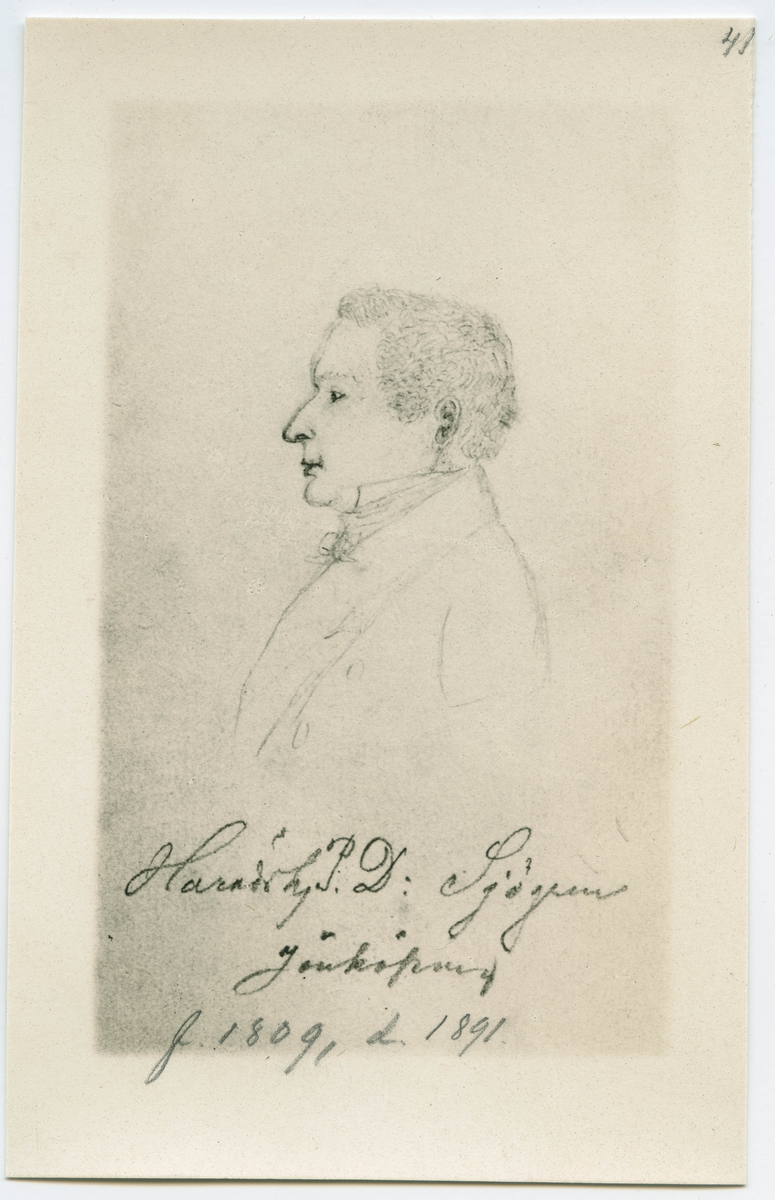 41
Häradsh. P. D: Sjögren
Jönköping
f. 1809, d. 1891.